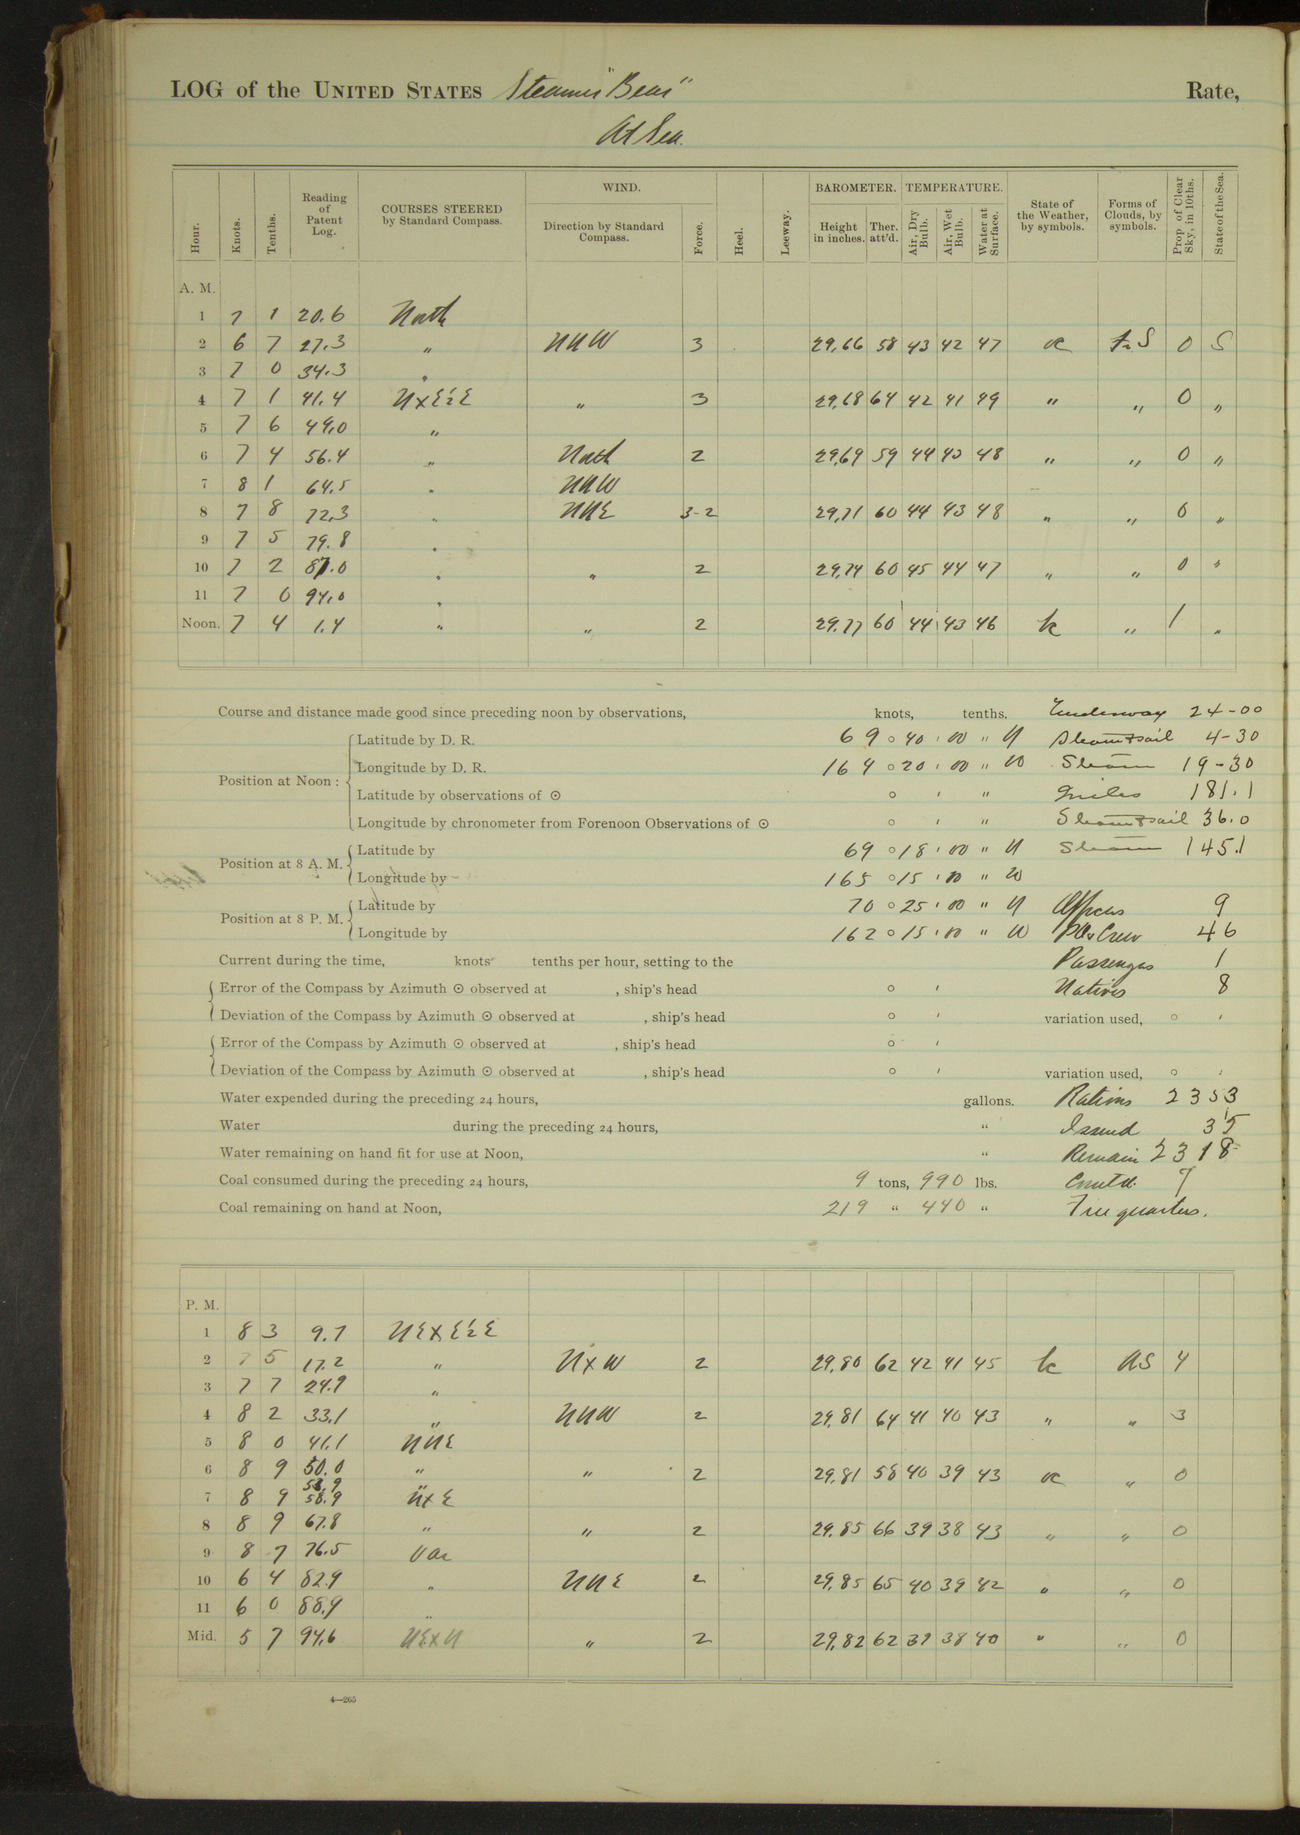 LOG of the UNITED STATES Steamer "Bear" Rate,
At Sea.
Hour. Knots. Tenths. Reading of Patent Log. COURSES STEERED by Standard Compass. WIND. Direction by Standard Compass. Force. Heel. Leeway. BAROMETER. Height in inches. Ther. att'd. TEMPERATURE. Air, Dry Bulb. Air, Wet Bulb. Water at Surface. State of the Weather, by symbols. Forms of Clouds, by symbols. Prop. of Clear Sky, in 10ths. State of the Sea.
A. M.
1 7 1 20.6 North
2 6 7 27.3 " NNW 3 29.66 58 43 42 47 oc S 0 S
3 7 0 34.3 "
4 7 1 41.4 NxE½E " 3 29.68 64 42 41 49 " " 0 "
5 7 6 49.0 "
6 7 4 56.4 " North 2 29.69 59 44 43 48 " " 0 "
7 8 1 64.5 " NNW
8 7 8 72.3 " NNE 3-2 29.71 60 44 43 48 " " 0 "
9 7 5 79.8 "
10 7 2 87.0 " " 2 29.74 60 45 44 47 " " 0 "
11 7 0 94.0 "
Noon. 7 4 1.4 " " 2 29.77 60 44 43 46 bc " 1 "
Course and distance made good since preceding noon by observations, knots, tenths. Underway 24-00
Latitude by D. R. 69 ° 40 ' 00 " N Steam & sail 4-30
Longitude by D. R. 164 ° 20 ' 00 " W Steam 19-30
Position at Noon: Latitude by observations of ☉ ° ' " Miles 181.1
Longitude by chronometer from Forenoon Observations of ☉ ° ' " Steam & sail 36.0
Position at 8 A. M. Latitude by 69 ° 18 ' 00 " N Steam 145.1
Longitude by 165 ° 15 ' 00 " W
Position at 8 P. M. Latitude by 70 ° 25 ' 00 " N Officers 9
Longitude by 162 ° 15 ' 00 " W Crew 46
Current during the time, knots tenths per hour, setting to the Passengers 1
Error of the Compass by Azimuth ☉ observed at , ship's head ° ' Natives 8
Deviation of the Compass by Azimuth ☉ observed at , ship's head ° ' variation used, ° '
Error of the Compass by Azimuth ☉ observed at , ship's head ° '
Deviation of the Compass by Azimuth ☉ observed at , ship's head ° ' variation used, ° '
Water expended during the preceding 24 hours, gallons. Rations 2353
Water during the preceding 24 hours, " Issued 35
Water remaining on hand fit for use at Noon, " Remain 2318
Coal consumed during the preceding 24 hours, 9 tons, 990 lbs. Comtd. 7
Coal remaining on hand at Noon, 219 " 440 " Free quarters.
P. M.
1 8 3 9.7 NExE½E
2 7 5 17.2 " NxW 2 29.80 62 42 41 45 bc AS 4
3 7 7 24.9 "
4 8 2 33.1 " NNW 2 29.81 64 41 40 43 " " 3
5 8 0 41.1 NNE
6 8 9 50.0 " " 2 29.81 58 40 39 43 oc " 0
7 8 9 58.9 58.9 NxE
8 8 9 67.8 " " 2 29.85 66 39 38 43 " " 0
9 8 7 76.5 Var
10 6 4 82.9 " NNE 2 29.85 65 40 39 42 " " 0
11 6 0 88.9 "
Mid. 5 7 94.6 NExN " 2 29.82 62 39 38 40 " " 0
4—265